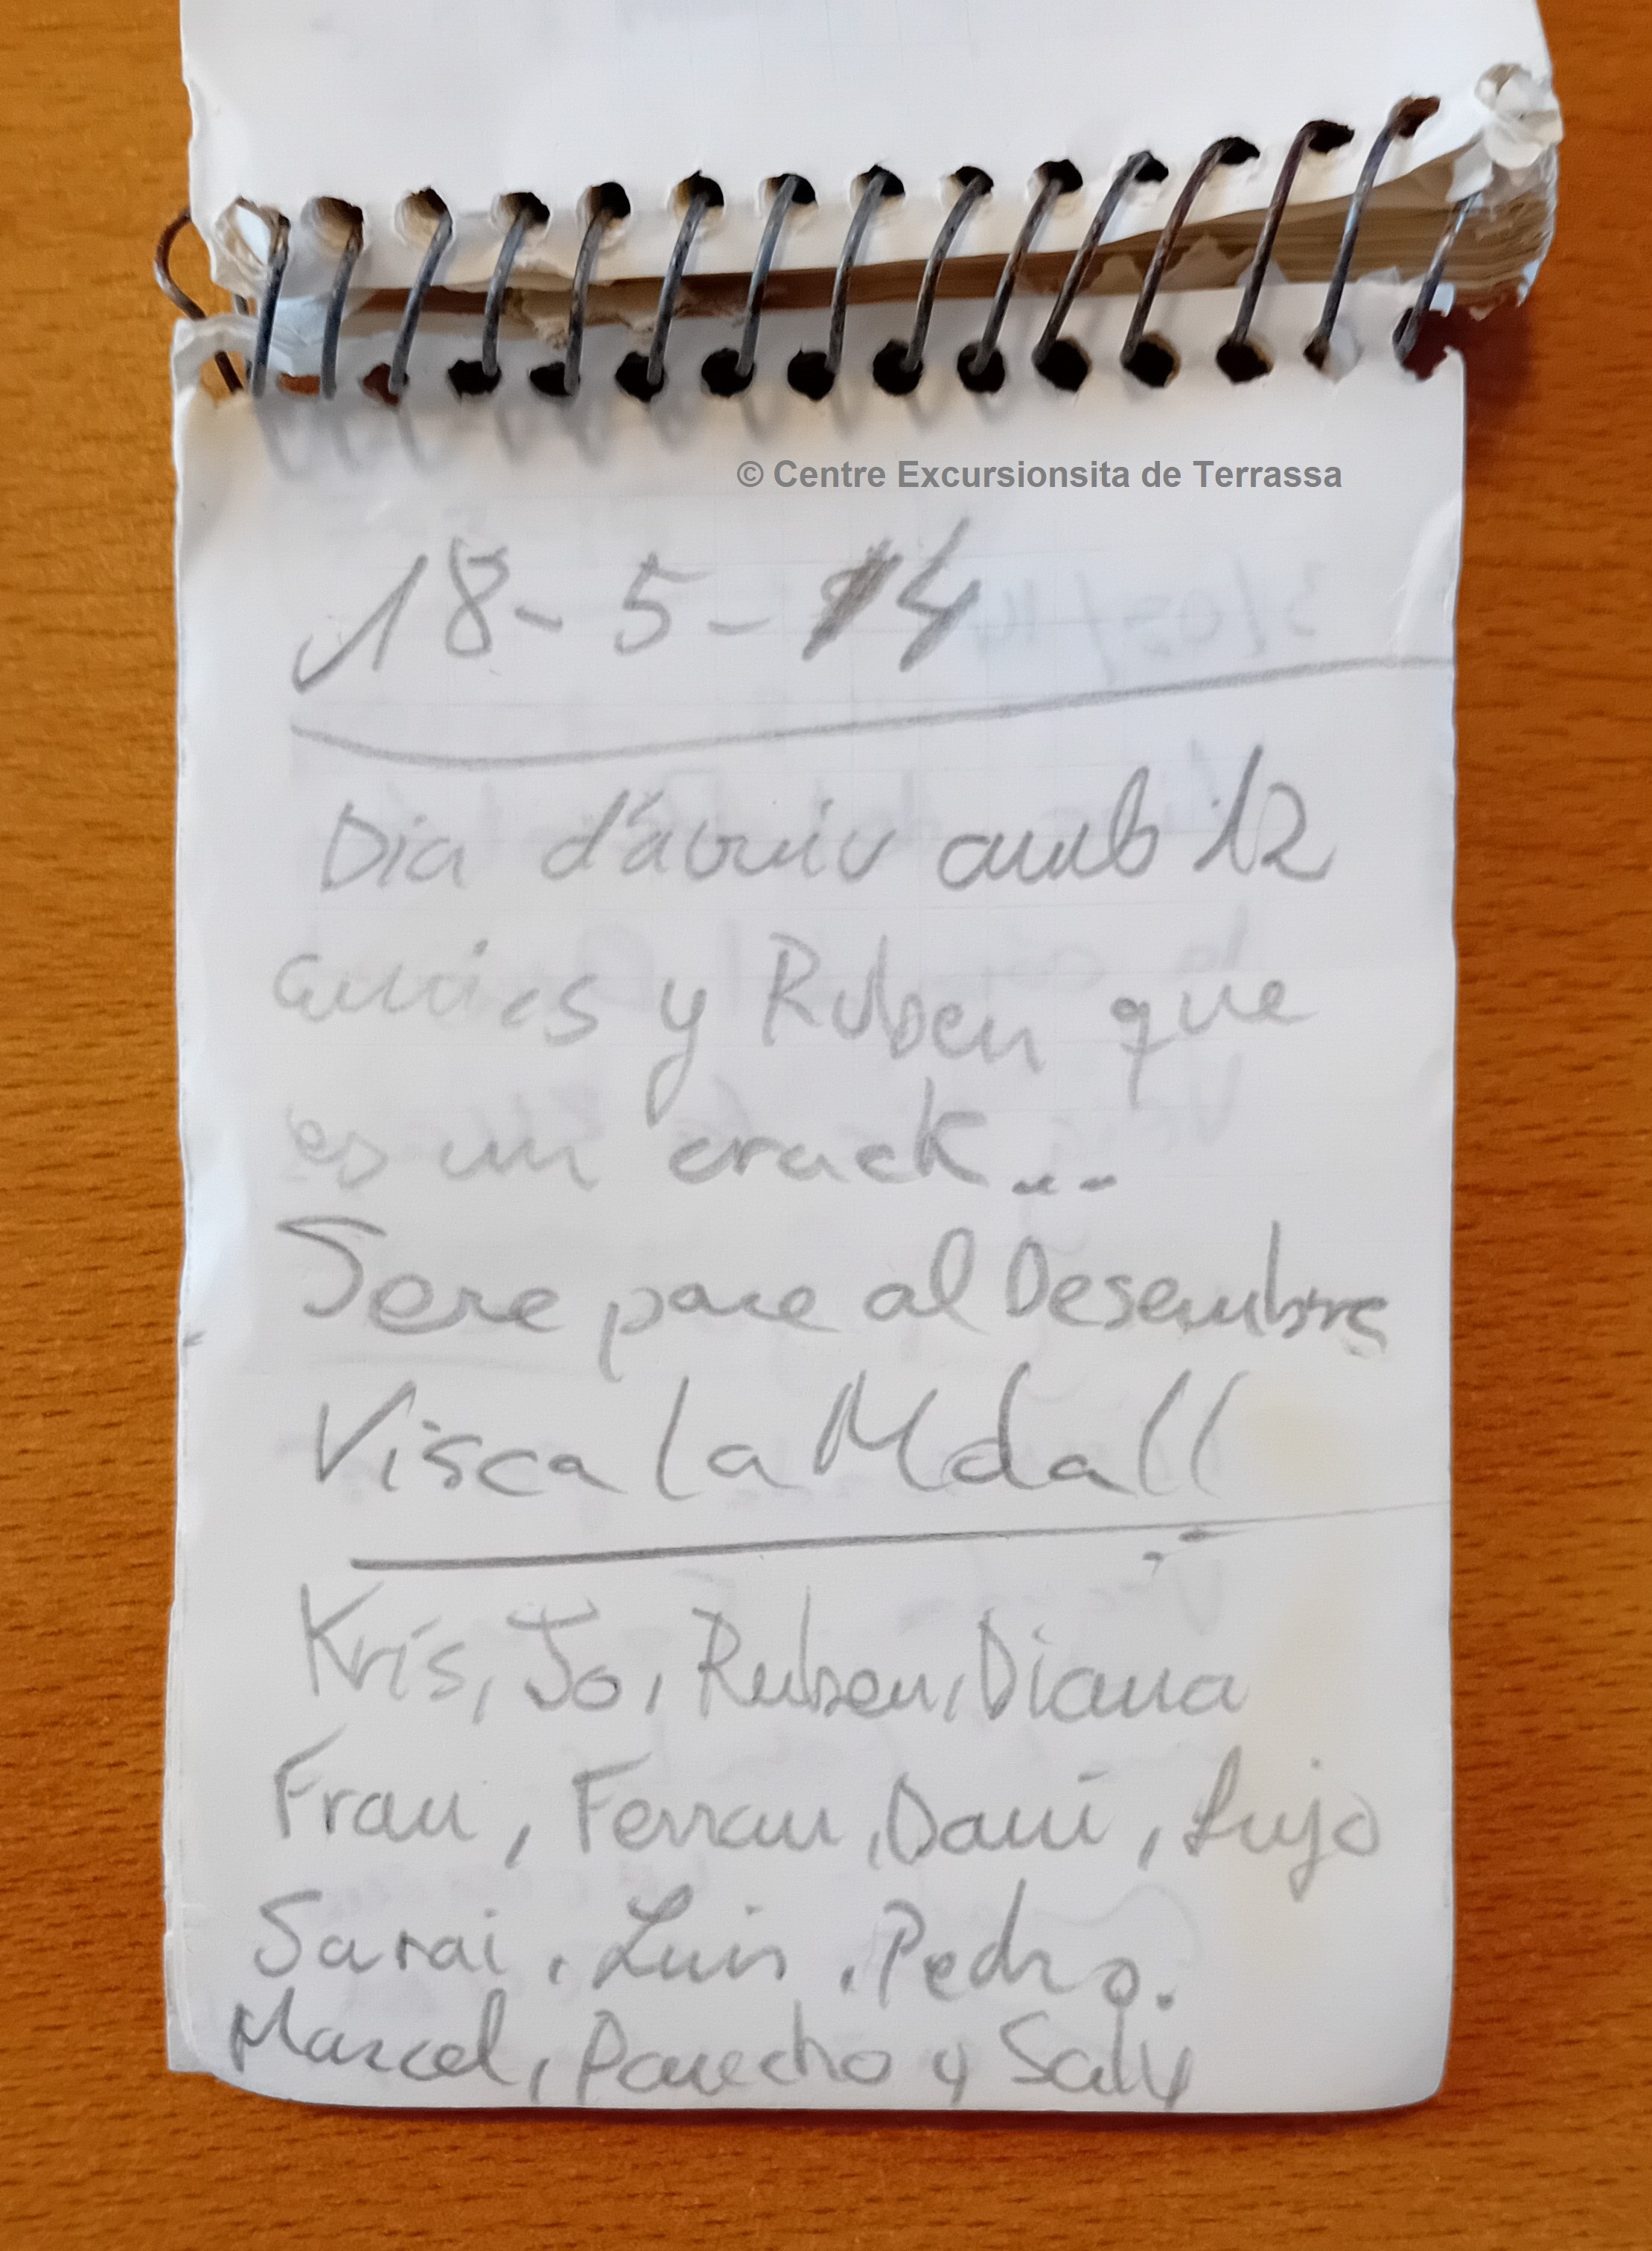 © Centre Excursionsita de Terrassa
18-5-14
Dia d'avuiv amb 12
amics y Ruben que
es un crack...
Sere pare al Desembre
Visca la Mda!!
Kris, Jo, Ruben, Diana
Fran, Ferran, Dani, Lujo
Sarai, Luis, Pedro.
Marcel, Pancho y Salv